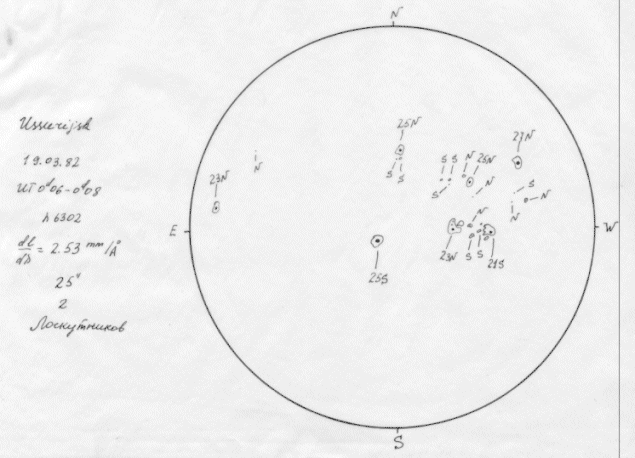 N
Ussurijsk
19.03.82
UT 0ʰ06-0ʰ08
λ 6302
dℓ/dλ = 2.53 mm/Å
25"
2
Лоскутников
25N
27N
N
26N
S S
S S
N
S
N
S
N
N
23N
E
W
N
23N
S
S
21S
25S
S